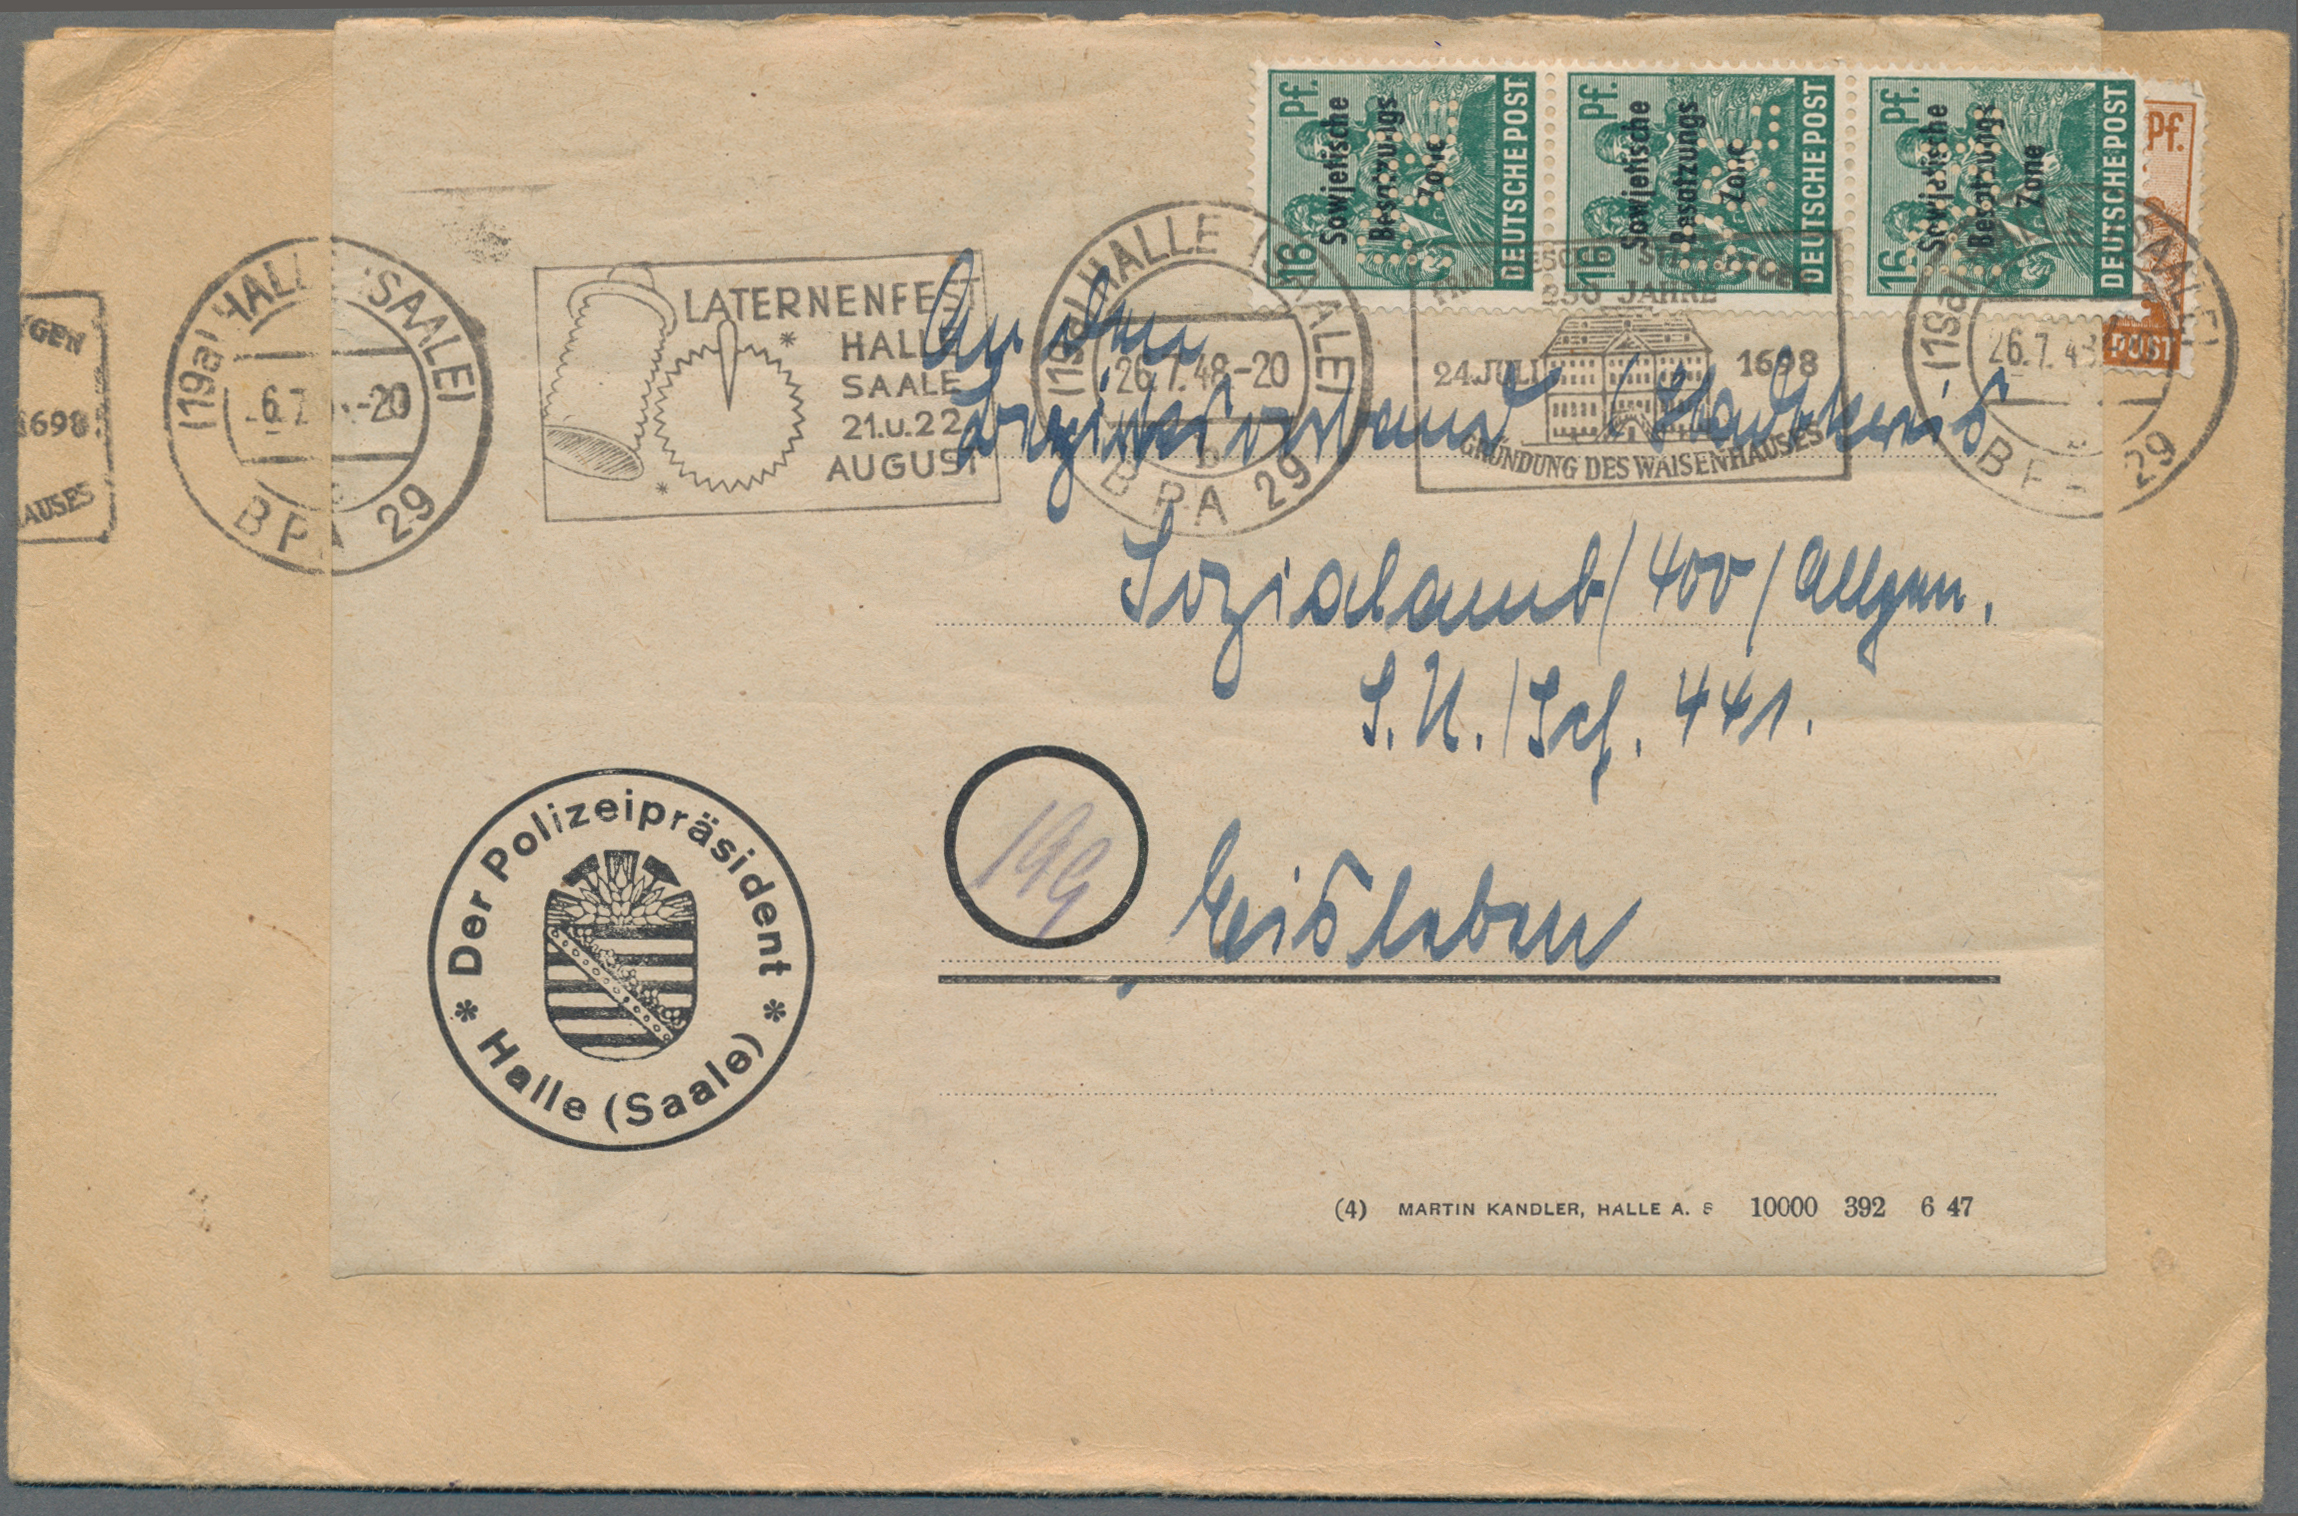 16 Pf.
Sowjetische
Besatzungs
Zone
DEUTSCHE POST
16 Pf.
Sowjetische
Besatzungs
Zone
DEUTSCHE POST
16 Pf.
Sowjetische
Besatzungs
Zone
DEUTSCHE POST
Pf.
POST
GEN
1698
AUSES
(19a) HALLE (SAALE)
6.7 -20
BPA 29
LATERNENFEST
HALLE
SAALE
21.u.22
AUGUST
(19a) HALLE (SAALE)
26.7.48.-20
b
BPA 29
250 JAHRE
24.JULI 1698
GRÜNDUNG DES WAISENHAUSES
(19a SAALE)
26.7.48
29
An den
Bezirksvorstand / Stadtkreis
Sozialamt / 400 / Allgem.
S.U. / Sch. 441.
19g
Eisleben
Der Polizeipräsident
* Halle (Saale) *
(4) MARTIN KANDLER, HALLE A. S 10000 392 6 47